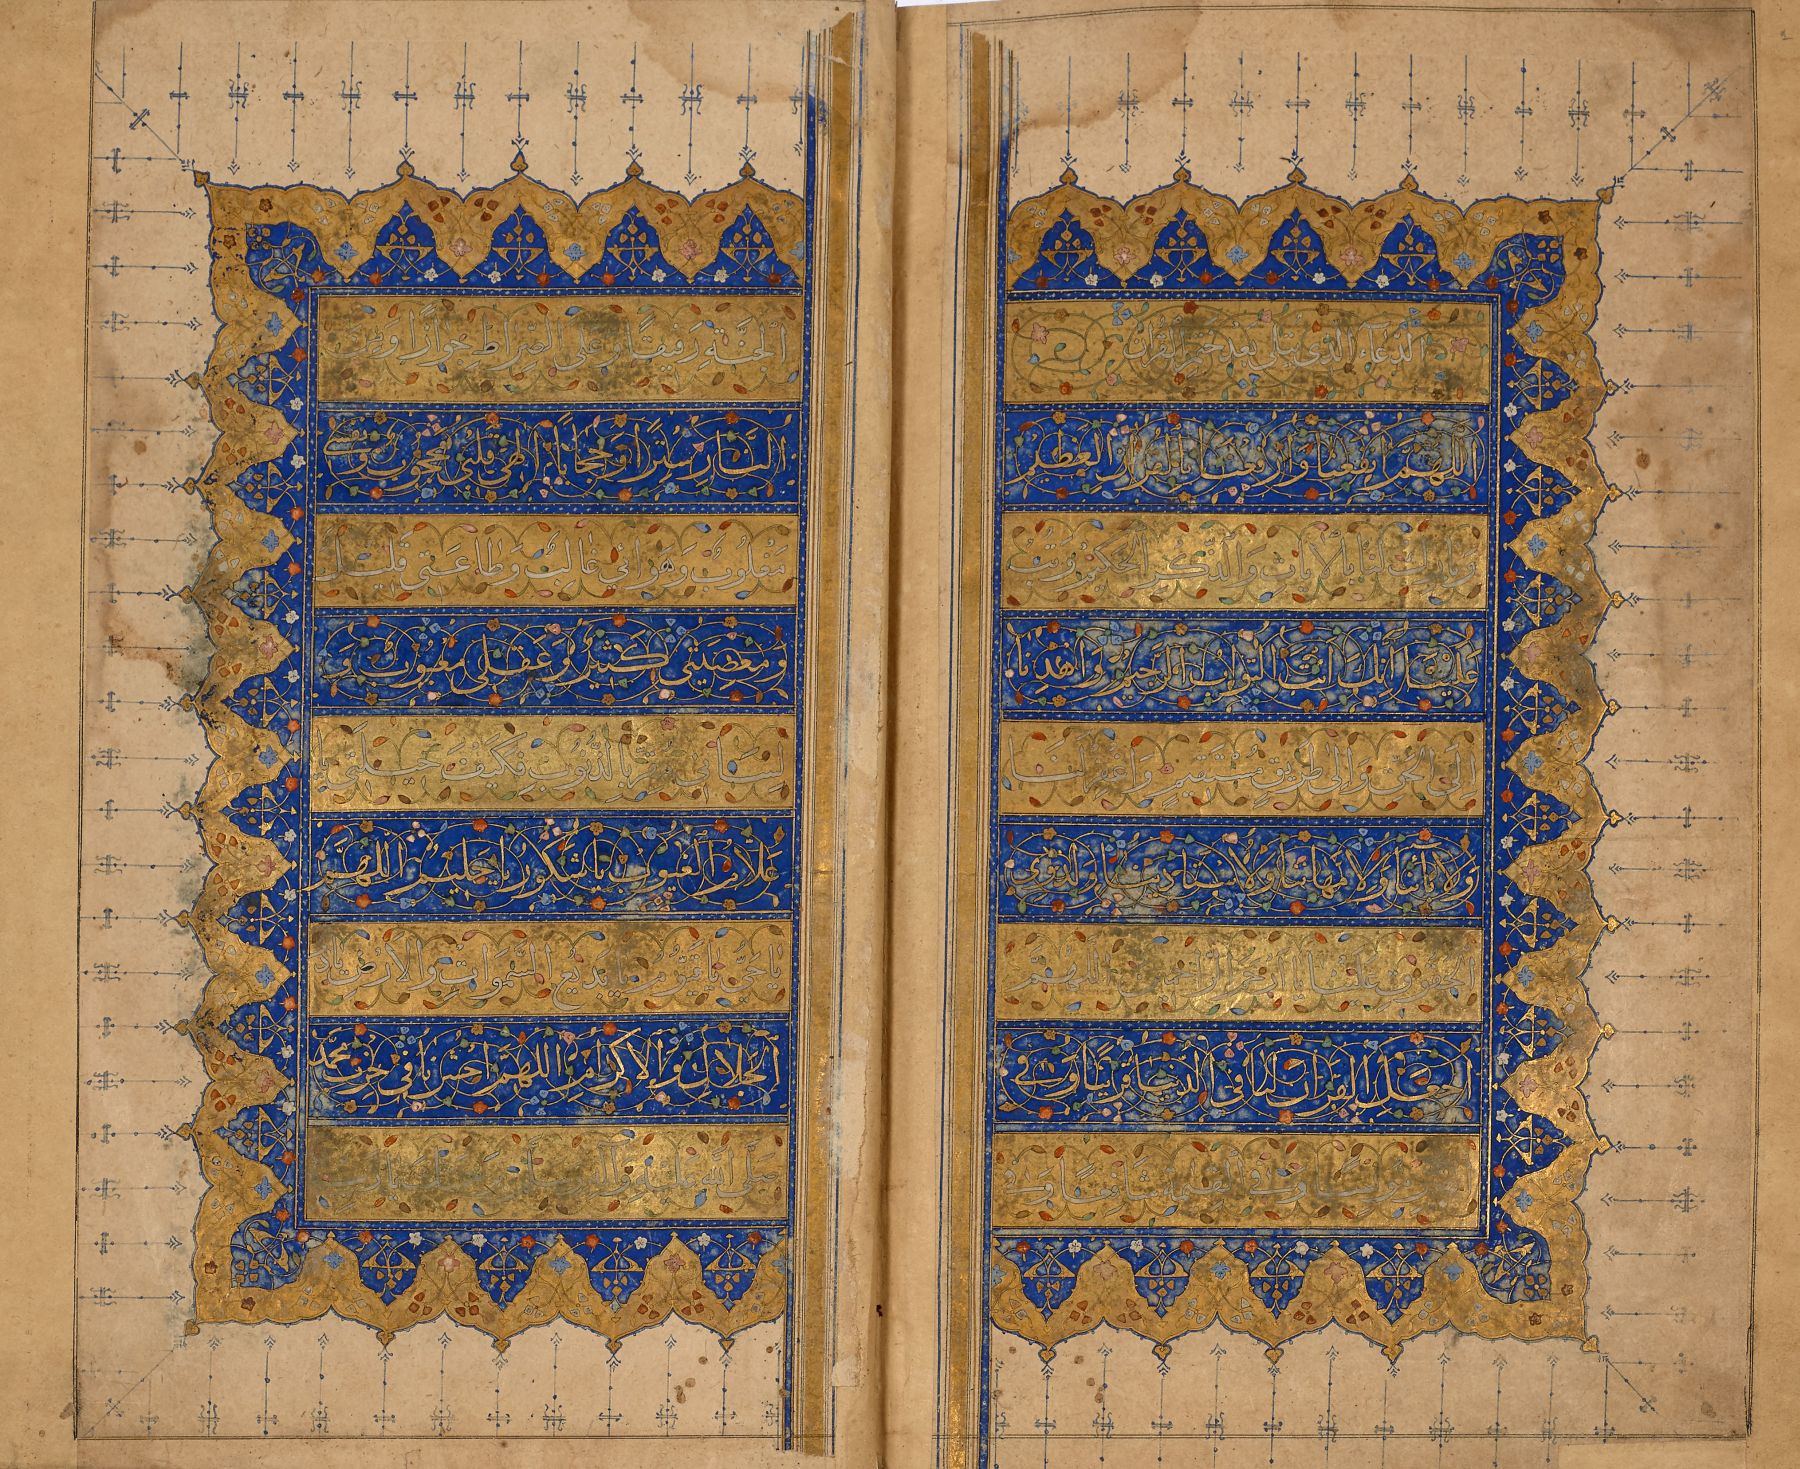 الدعاء الذي يتلى بعد ختم القرآن
اللهم انفعنا وارفعنا بالقرآن العظيم
وبارك لنا بالآيات والذكر الحكيم وتب
علينا إنك أنت التواب الرحيم واهدنا
إلى الحق وإلى طريق مستقيم واغفر لنا
ولآبائنا ولأمهاتنا ولأستادينا ولذوي
الحقوق علينا يا أرحم الراحمين اللهم
اجعل القرآن لنا في الدنيا قرينا وفي
القبر مونسا وفي القيمة شافعا وفي
الجنَّةِ رَفيقًا وعلى الصِّراطِ جوازًا ومن
النَّار سترًا وحجابًا الهي قلبي محجوب ونفسي
مغلوب وهوائي غالب وطاعتي قليل
ومعصيتي كثير وعقلي معيوب و
لساني مقر بالذنوب فكيف حيلتي يا
علّام الغيوب يا شكور يا حليم اللهم
يا حي يا قيوم يا بديع السموات والأرض يا ذا
الجلال والاكرام اللهم احشرنا في حزب محمد
صلى الله عليه وآله